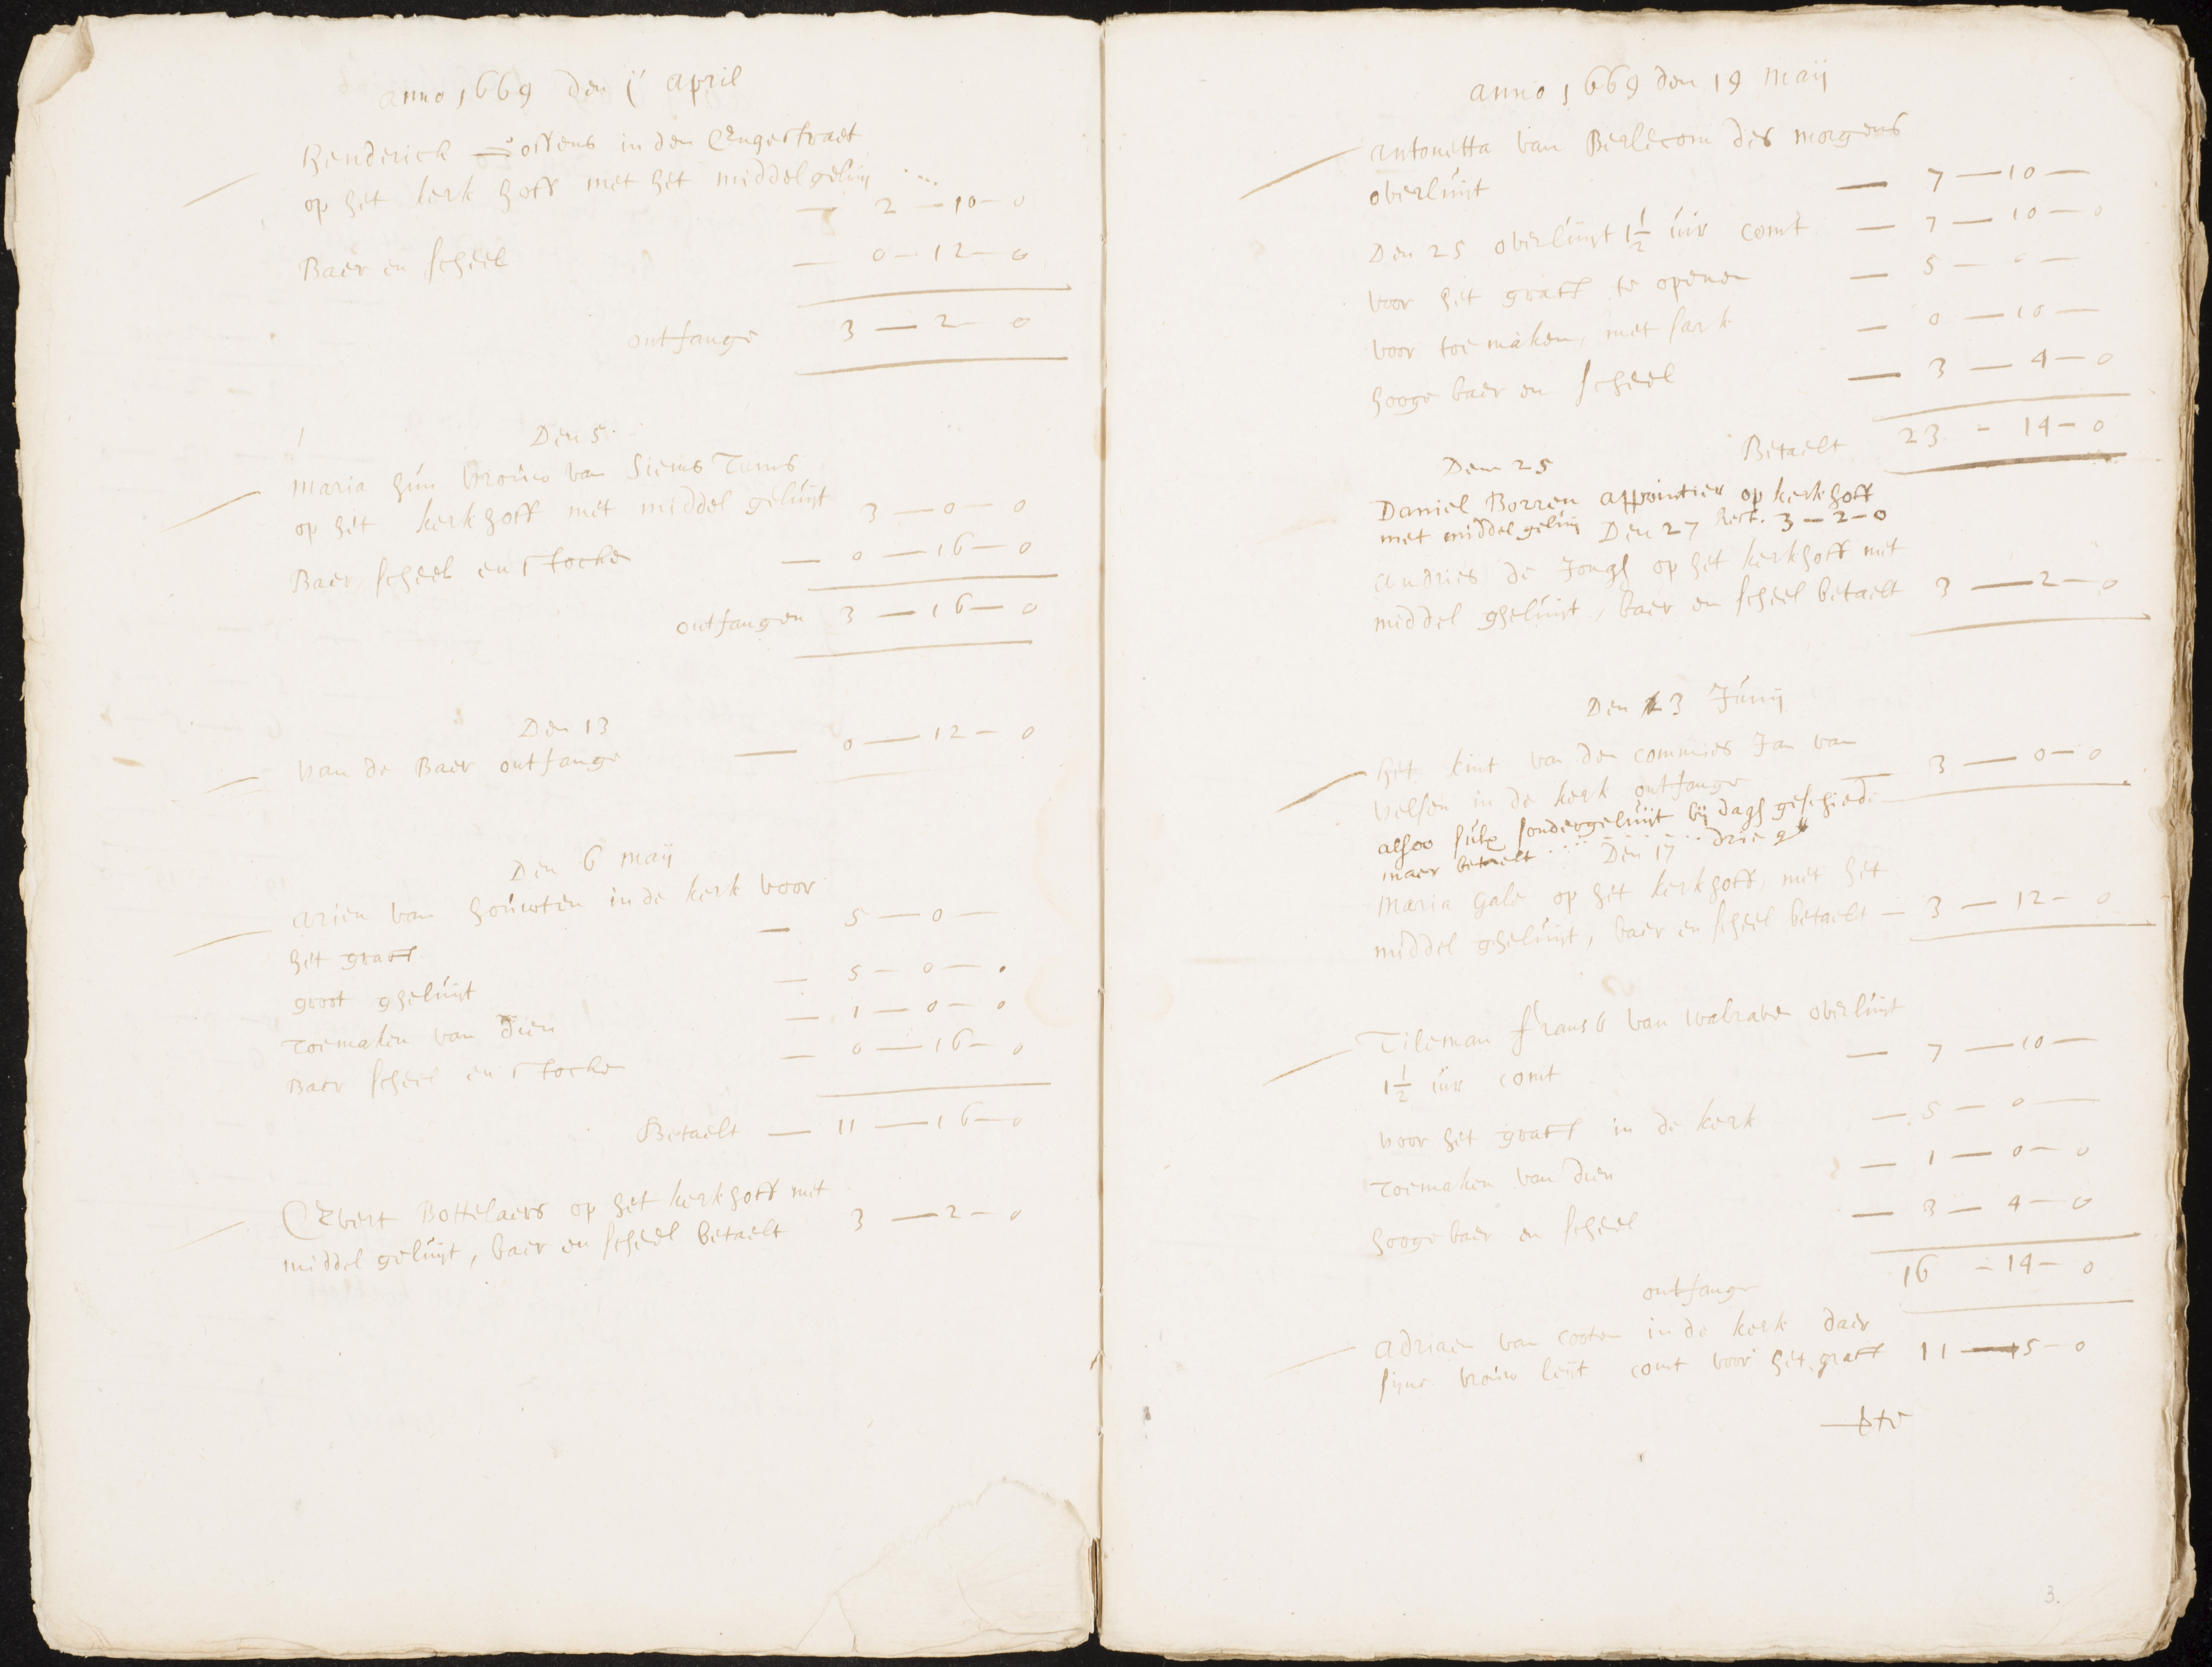 anno 1669 den april
Henderick in den Engestraet
op het kerk hoff met het middel geluij
2 — 10 — 0
Baer en scheel — 0 — 12 — 0
ontfange 3 — 2 — 0
Den 5
Maria hun vrouw van Siems
op het kerkhoff met middel geluijt 3 — 0 — 0
Baer, scheel en stocke — 0 — 16 — 0
ontfangen 3 — 16 — 0
Den 13
van de Baer ontfange — 0 — 12 — 0
Den 6 maij
Arien van houwten in de kerk voor
het graff — 5 — 0 —
groot gheluijt — 5 — 0 —
Toemaken van dien — 1 — 0 — 0
Baer scheel en stocke — 0 — 16 — 0
Betaelt — 11 — 16 — 0
Evert Bottelaers op het kerkhoff met
middel geluijt, baer en scheel betaelt 3 — 2 — 0
anno 1669 den 19 Maij
Antonetta van Berlecom des morgens
overluijt — 7 — 10 —
Den 25 overluijt 1½ uür comt — 7 — 10 — 0
voor het graff te openen — 5 — 0 —
voor toe maken, met sark — 0 — 10 —
hooge baer en scheel — 3 — 4 — 0
Betaelt 23 — 14 — 0
Den 25
Daniel Borren appointier op kerkhoff
met middel geluij Den 27 3 — 2 — 0
Andries de Jongh op het kerkhoff met
middel gheluijt, baer en scheel betaelt 3 — 2 — 0
Den 3 Junij
Het kint van den commies Jan van
Velsen in de kerk ontfange — 3 — 0 — 0
alsoo sulx sonder geluijt bij dagh geschiede
maer betaelt drie
Den 17
Maria Gale op het kerkhoff, met het
middel gheluijt, baer en scheel betaelt — 3 — 12 — 0
Tileman van Walraven overluijt
1½ uür comt — 7 — 10 —
voor het graff in de kerk — 5 — 0 —
Toemaken van dien — 1 — 0 — 0
hooge baer en scheel — 3 — 4 — 0
ontfange 16 — 14 — 0
Adriaen van Cooten in de kerk daer
sijne vrouw leijt comt voor het graff 11 — 15 — 0
3.